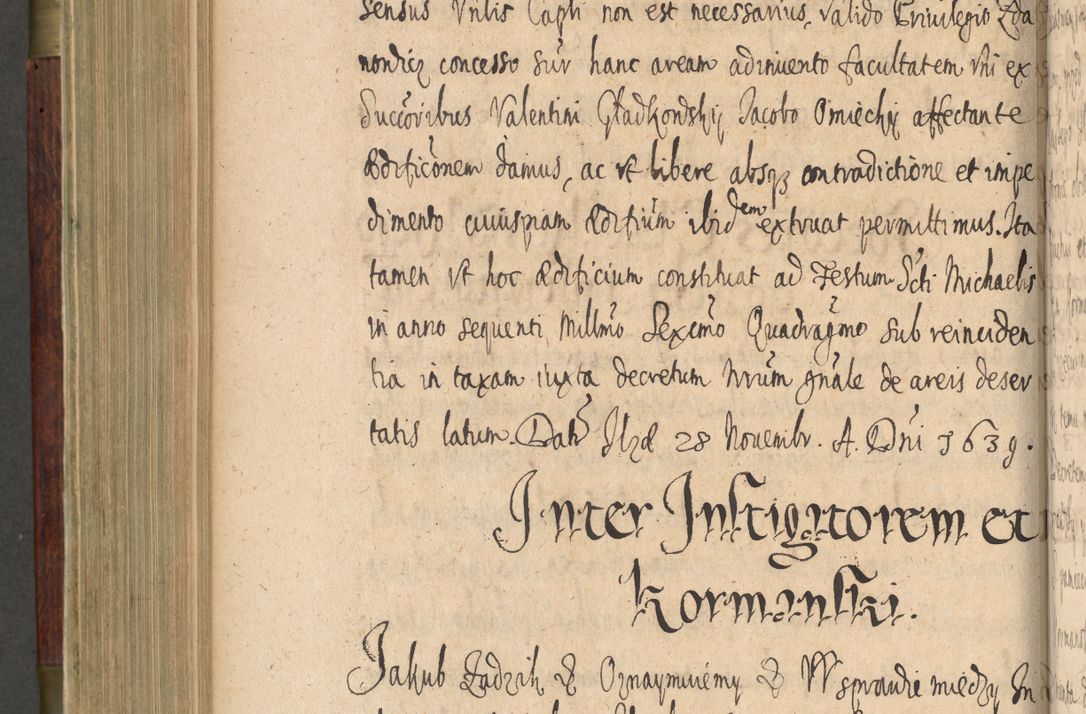 sensus Vntis Capli non est necessarius, valido Privilegio Zda
nondicz concesso sur hanc aream adinuento facultatem vni ex
Succoribus Valentini Gładkowskij Jacobo Omieckij affectante
Ædificõnem damus, ac vt libere absqz contradictione et impe
dimento cuiuspiam Ædifium ibidem extruat permittimus. Ita
tamen vt hoc Ædificium constituat ad Festum Scti Michaelis
in anno sequenti Millmo Sexcmo Quadragmo sub reinciden
tia in taxam iuxta decretum Nrum gnale de areis deser
tatis latum. Dat Ilzæ 28 Novembr. A. Dni 1639.
Inter Instigatorem et
Kormanski.
Jakub Zadzik & Oznaymuiemy & W sprawie między In